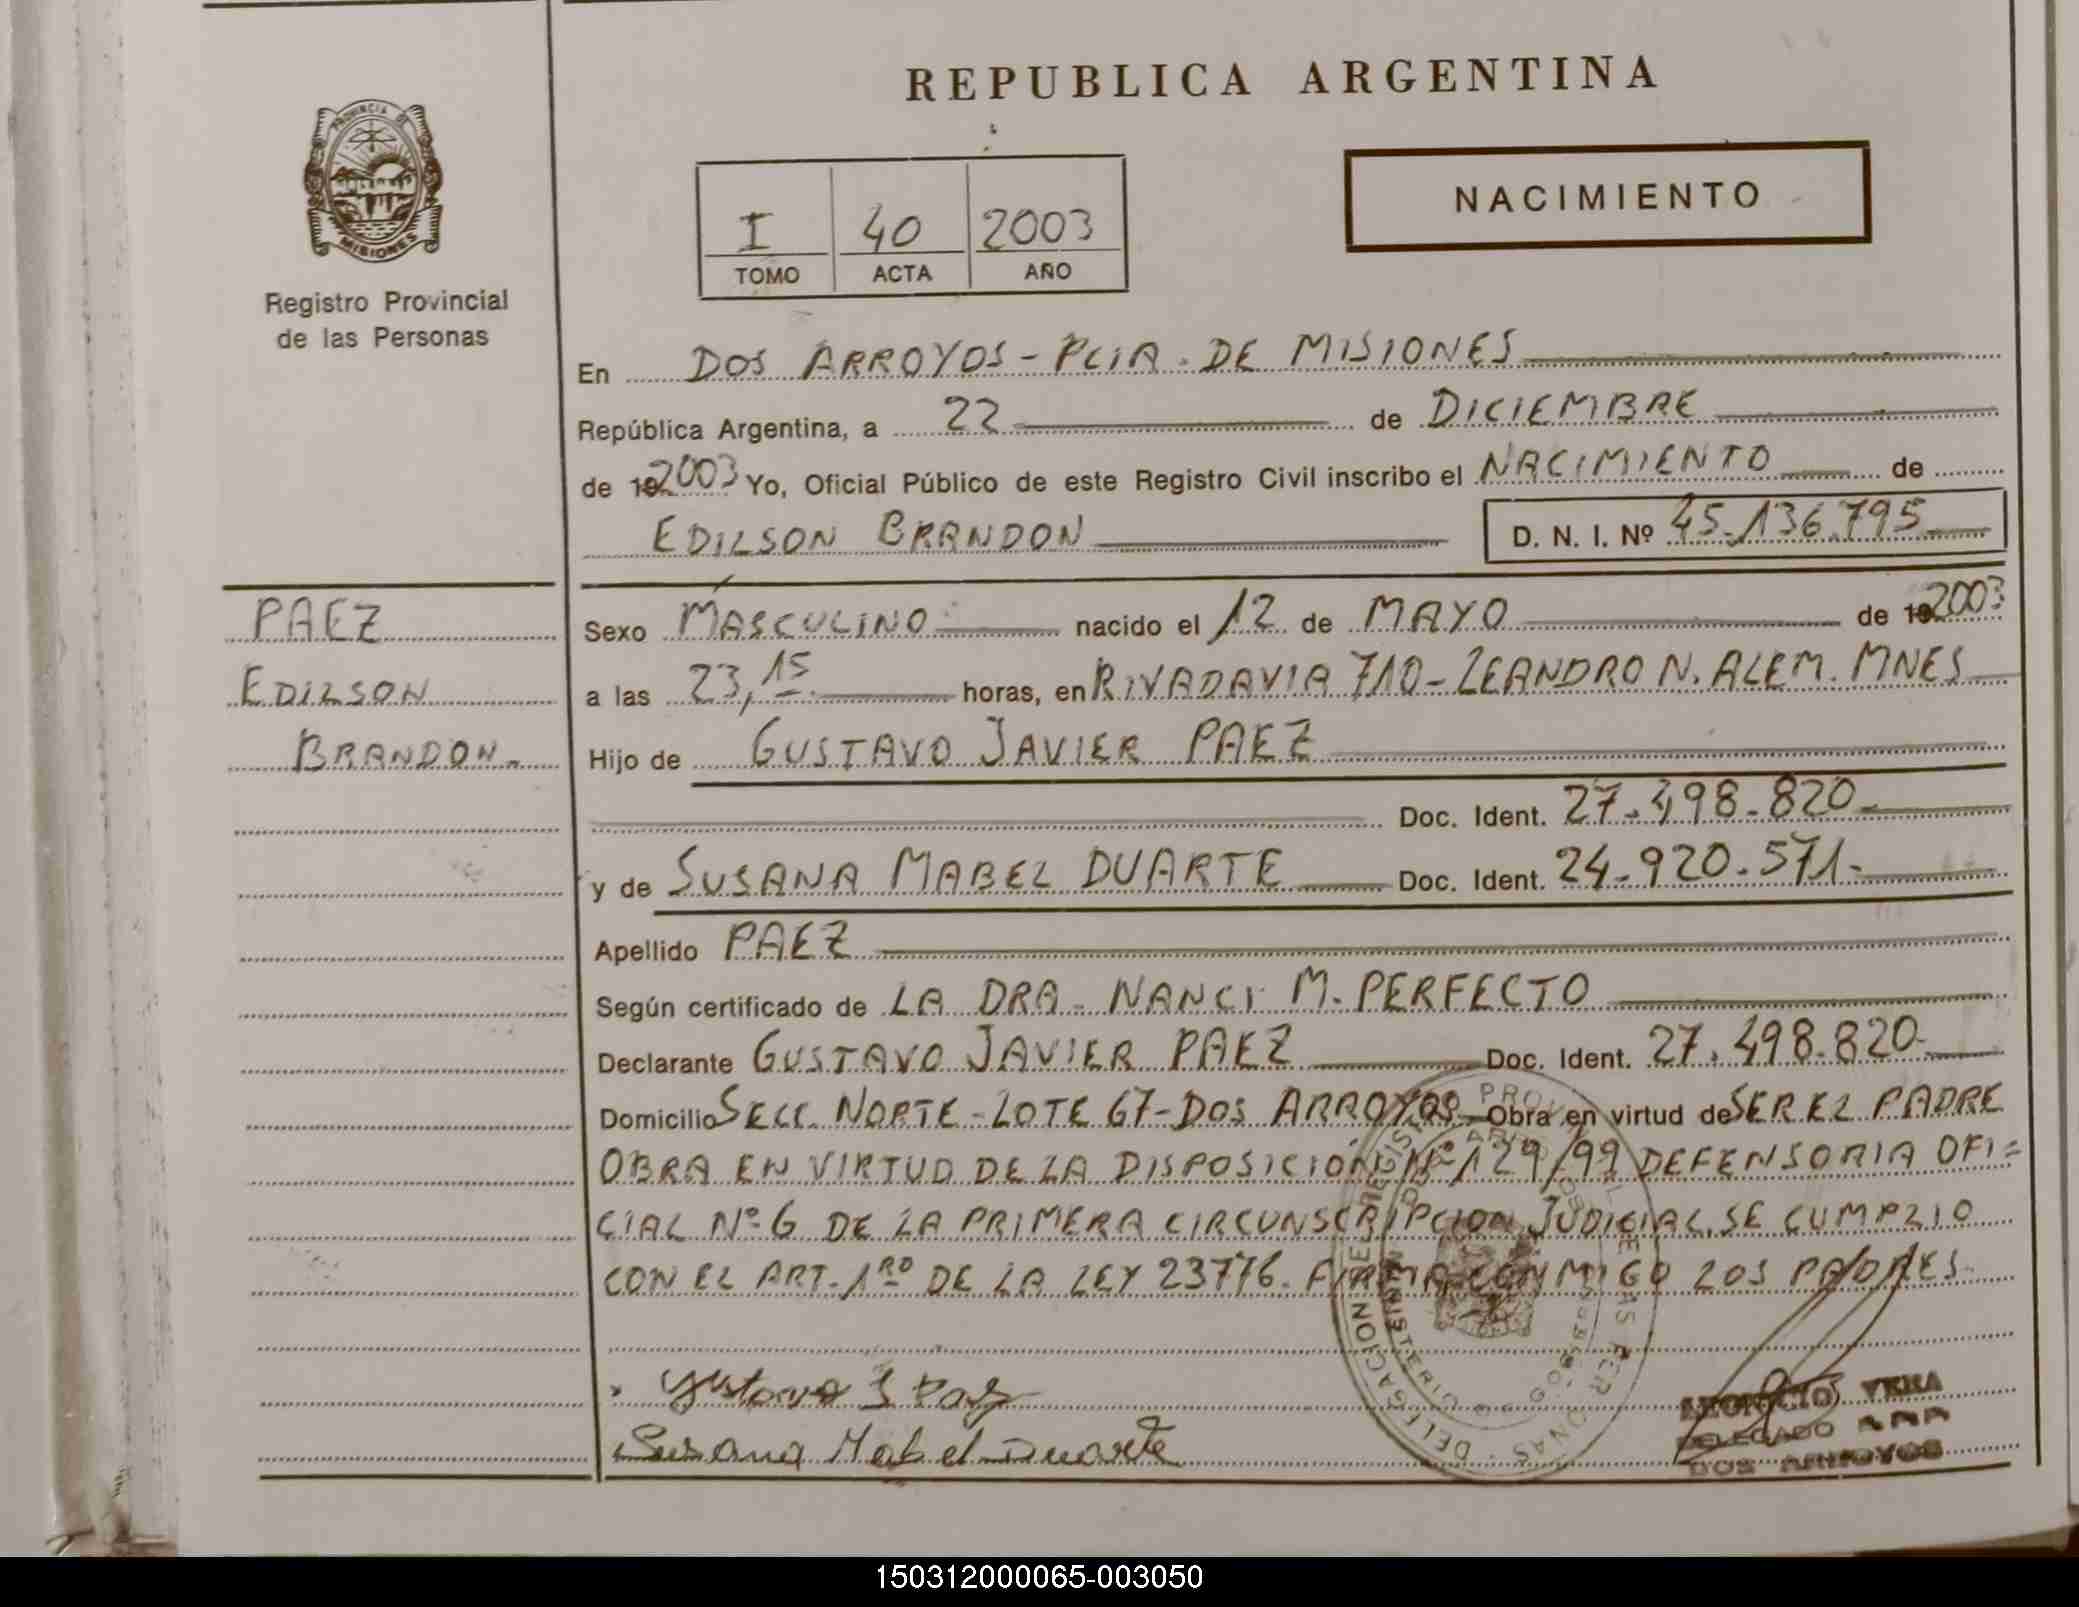 REPUBLICA ARGENTINA
PROVINCIA DE
MISIONES
Registro Provincial
de las Personas
I 40 2003
TOMO ACTA AÑO
NACIMIENTO
En DOS ARROYOS - PCIA. DE MISIONES
República Argentina, a 22 de DICIEMBRE
de 19 2003 Yo, Oficial Público de este Registro Civil inscribo el NACIMIENTO de
EDILSON BRANDON D. N. I. Nº 45.136.795
PAEZ
EDILSON
BRANDON.
Sexo MASCULINO nacido el 12 de MAYO de 19 2003
a las 23,15 horas, en RIVADAVIA 710 - LEANDRO N. ALEM. MNES
Hijo de GUSTAVO JAVIER PAEZ
Doc. Ident. 27.498.820-
y de SUSANA MABEL DUARTE Doc. Ident. 24.920.571-
Apellido PAEZ
Según certificado de LA DRA. NANCI M. PERFECTO
Declarante GUSTAVO JAVIER PAEZ Doc. Ident. 27.498.820-
Domicilio SECC. NORTE - LOTE 67 - DOS ARROYOS Obra en virtud de SER EL PADRE
OBRA EN VIRTUD DE LA DISPOSICIÓN Nº 129/99 DEFENSORIA OFI=
CIAL Nº 6 DE LA PRIMERA CIRCUNSCRIPCION JUDICIAL. SE CUMPLIO
CON EL ART. 1RO DE LA LEY 23776. FIRMA CONMIGO LOS PADRES.
Gustavo J Paez
Susana Mabel Duarte
VERA
DELEGADO
DOS ARROYOS
150312000065-003050